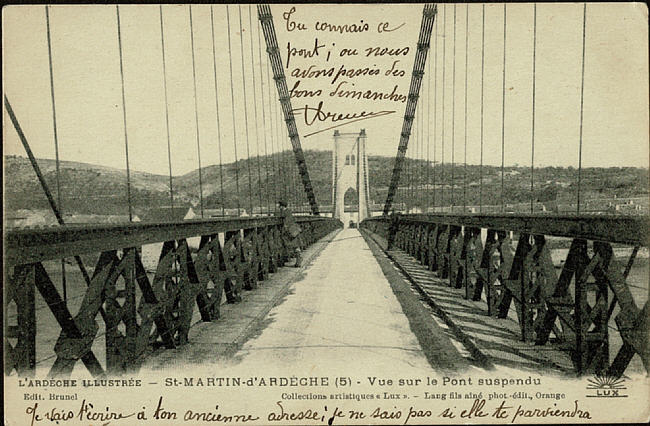 Tu connais ce
pont; où nous
avons passés des
bons dimanches
L'ARDÈCHE ILLUSTRÉE — ST-MARTIN-D'ARDÈCHE (5) - Vue sur le Pont suspendu
Edit. Brunel Collections artistiques « Lux ». - Lang fils aîné phot.-édit., Orange
LUX
Je vais t'écrire à ton ancienne adresse; je ne sais pas si elle te parviendra